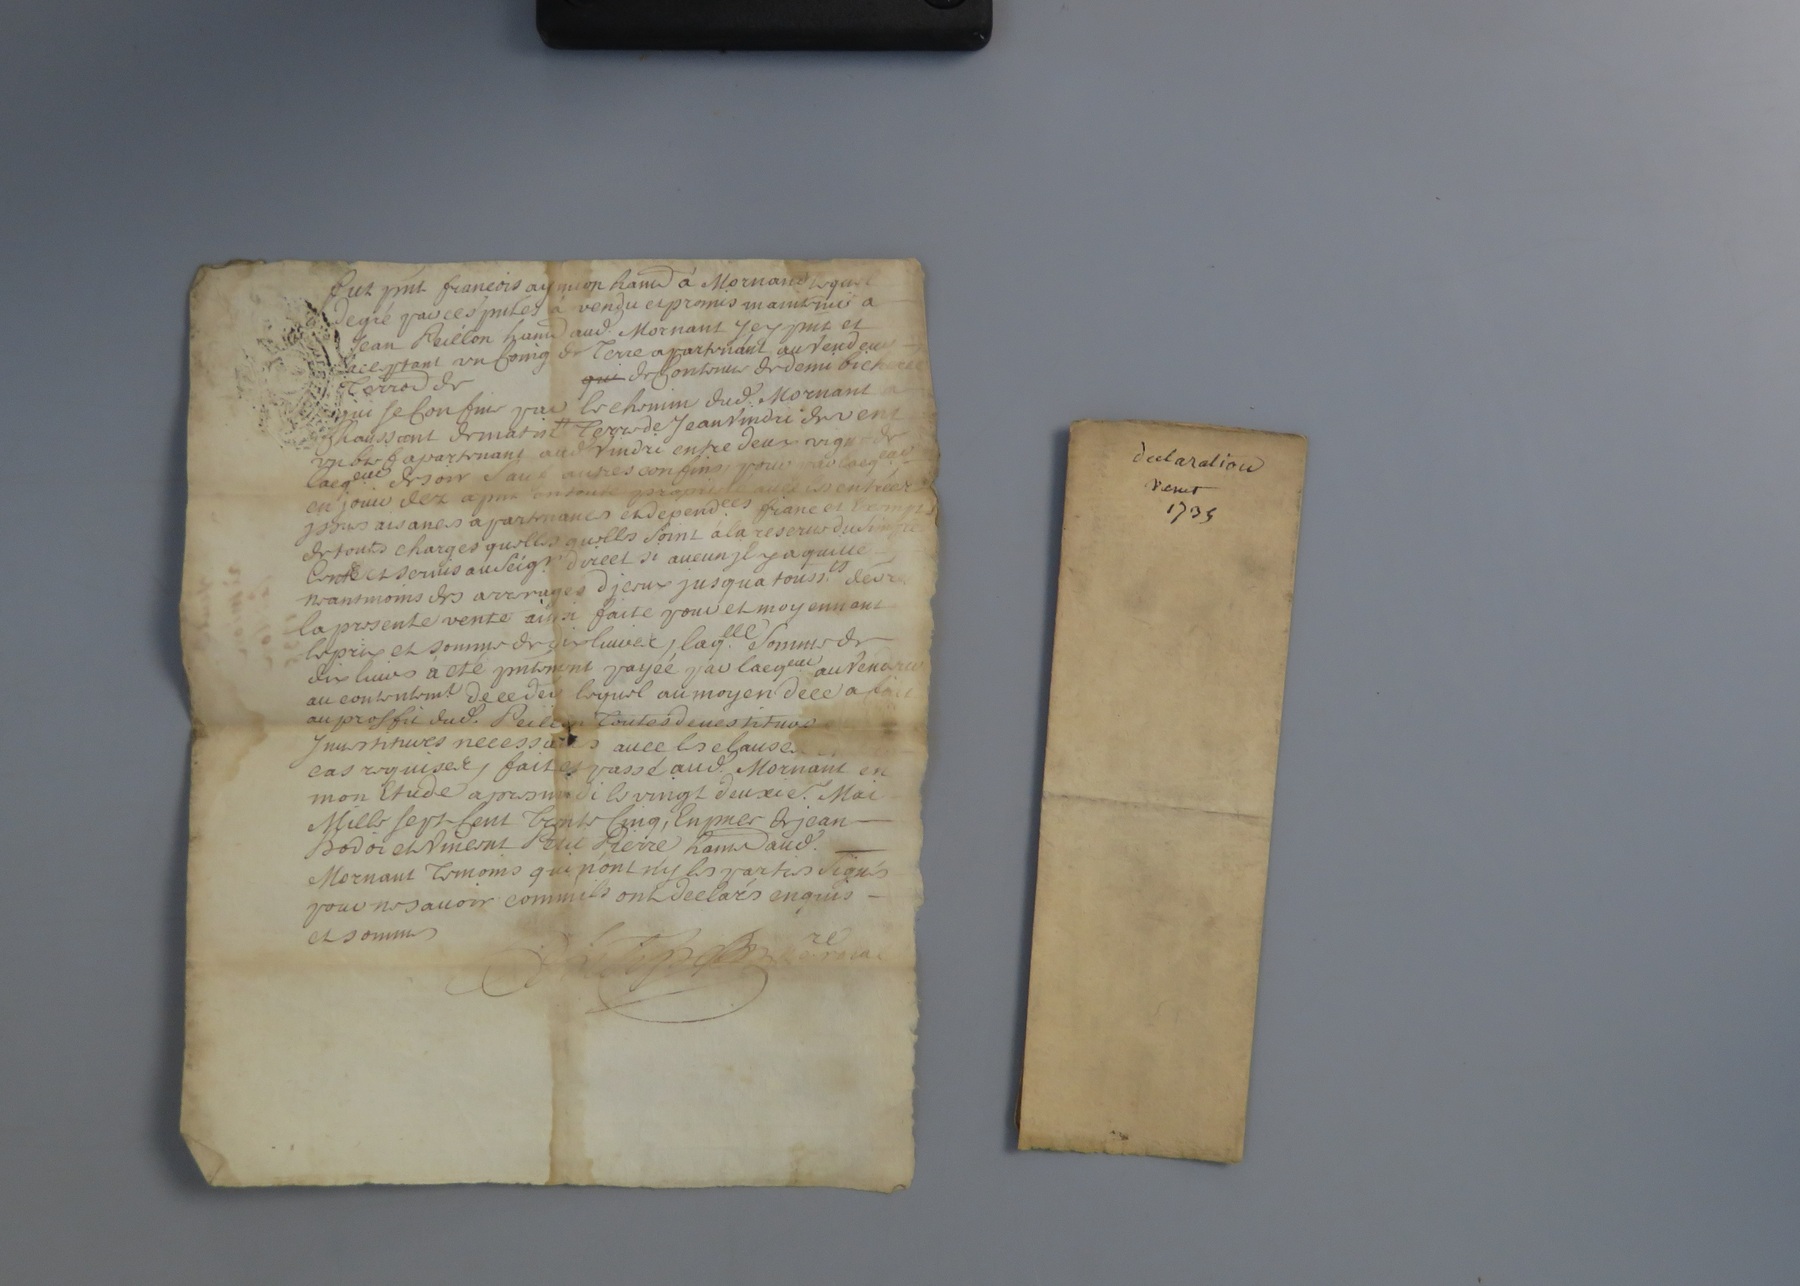 fut pnt francois aymion hant à Mornand lequel
degré par ces pntes à vendu et promis maintenir a
Jean Peillon hant aud. Mornant Jcy pnt et
acceptant un Coing de Terre apartenant au Vendeur
Terroir de qui de Contenue de demi bicherée
qui se Confine par le chemin dud. Mornant a
Chaussant de matin Terre de Jean Vindri de vent
un bief apartenant aud Vindri entre deux vigne de
lacqeur de soir sauf autres confins, pour par lacqeur
en jouir dez apnt en toute propriete avec ses entrées
jssues aisances apartenances et dependces franc et Exempts
de touts charges quelles quelles soint à la reserve du Simple
Cens et servis au Seigr direct si aucun jl y a quitte
neantmoins des arrerages djceux jusqua touss.ts dere
la presente vente ainsi faite pour et moyennant
le prix et somme de dix livres, laqlle Somme de
dix livres à eté pntement payée par lacqeur au Vendeur
au contentemt de ce der lequel au moyen de ce a fait
au proffit dud. Peillon Toutes devestiture
Jnvestitures necessaires avec les clauses
cas requises, fait et passé aud. Mornant en
mon Etude apresmidi le vingt deuxie. Mai
Mille sept Cent trente Cinq, En pnce de jean
Bodoi et Vincent Petit Pierre hants aud.
Mornant Temoins qui nont n'y les parties signés
pour ne savoir comm'ils ont declarés enquis
et sommés
re
roial
declaration
vente
1735